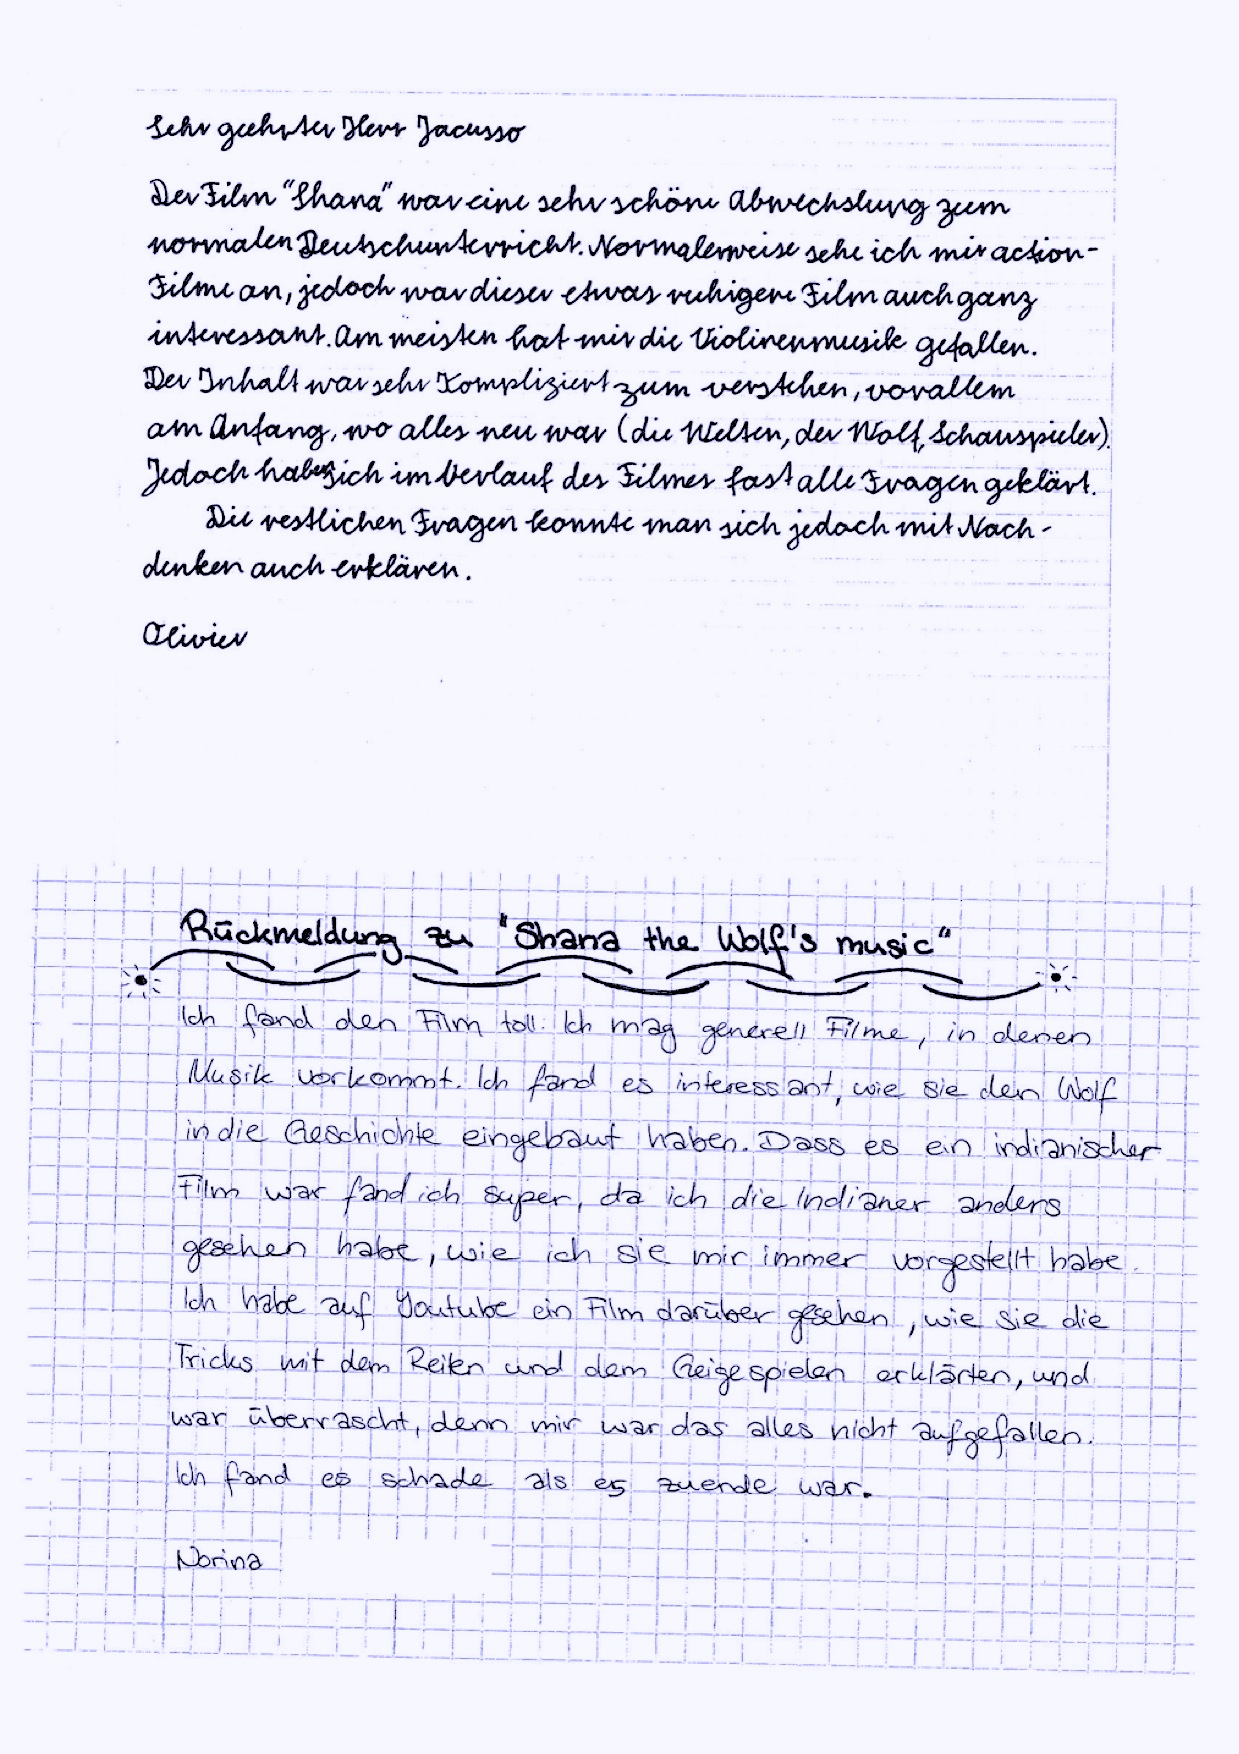 Sehr geehrter Herr Jacusso
Der Film "Shana" war eine sehr schöne Abwechslung zum
normalen Deutschunterricht. Normalerweise sehe ich mir action-
Filme an, jedoch war dieser etwas ruhigere Film auch ganz
interessant. Am meisten hat mir die Violinenmusik gefallen.
Der Inhalt war sehr Kompliziert zum verstehen, vorallem
am Anfang, wo alles neu war (die Welten, der Wolf, Schauspieler).
Jedoch haben sich im Verlauf des Filmes fast alle Fragen geklärt.
Die restlichen Fragen konnte man sich jedoch mit Nach-
denken auch erklären.
Olivier
Rückmeldung zu "Shana the Wolf's music"
Ich fand den Film toll. Ich mag generell Filme, in denen
Musik vorkommt. Ich fand es interessant, wie sie den Wolf
in die Geschichte eingebaut haben. Dass es ein indianischer
Film war fand ich super, da ich die Indianer anders
gesehen habe, wie ich sie mir immer vorgestellt habe.
Ich habe auf Youtube ein Film darüber gesehen, wie sie die
Tricks mit dem Reiten und dem Geigespielen erklärten, und
war überrascht, denn mir war das alles nicht aufgefallen.
Ich fand es schade als es zuende war.
Norina